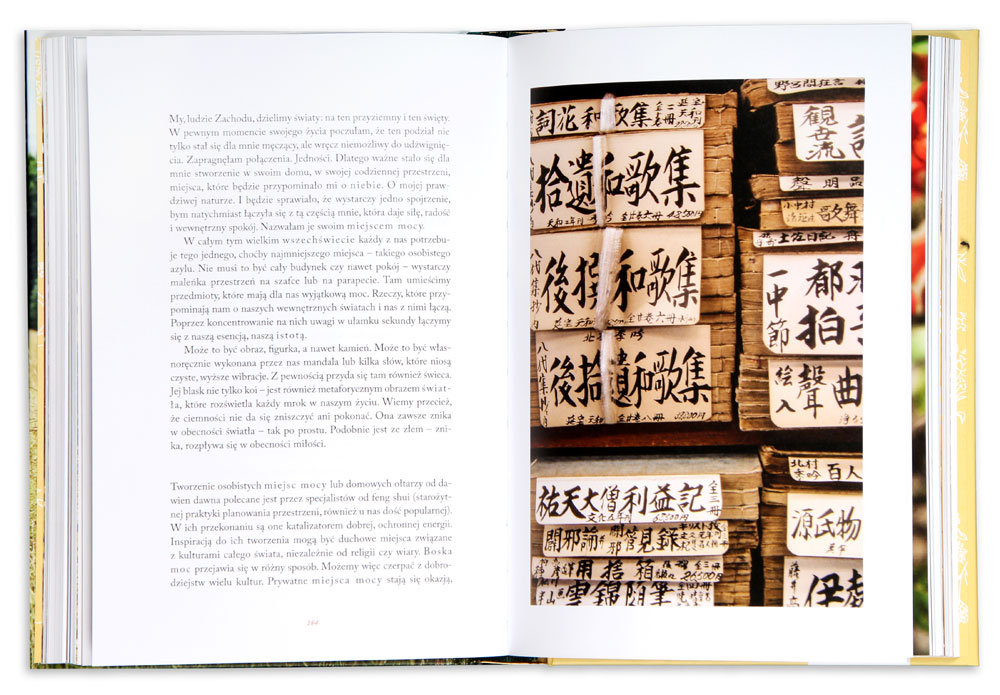 My, ludzie Zachodu, dzielimy światy: na ten przyziemny i ten święty.
W pewnym momencie swojego życia poczułam, że ten podział nie
tylko stał się dla mnie męczący, ale wręcz niemożliwy do udźwignię-
cia. Zapragnęłam połączenia. Jedności. Dlatego ważne stało się dla
mnie stworzenie w swoim domu, w swojej codziennej przestrzeni,
miejsca, które będzie przypominało mi o niebie. O mojej praw-
dziwej naturze. I będzie sprawiało, że wystarczy jedno spojrzenie,
bym natychmiast łączyła się z tą częścią mnie, która daje siłę, radość
i wewnętrzny spokój. Nazwałam je swoim miejscem mocy.
W całym tym wielkim wszechświecie każdy z nas potrzebu-
je tego jednego, choćby najmniejszego miejsca – takiego osobistego
azylu. Nie musi to być cały budynek czy nawet pokój – wystarczy
maleńka przestrzeń na szafce lub na parapecie. Tam umieścimy
przedmioty, które mają dla nas wyjątkową moc. Rzeczy, które przy-
pominają nam o naszych wewnętrznych światach i nas z nimi łączą.
Poprzez koncentrowanie na nich uwagi w ułamku sekundy łączymy
się z naszą esencją, naszą istotą.
Może to być obraz, figurka, a nawet kamień. Może to być włas-
noręcznie wykonana przez nas mandala lub kilka słów, które niosą
czyste, wyższe wibracje. Z pewnością przyda się tam również świeca.
Jej blask nie tylko koi – jest również metaforycznym obrazem świat-
ła, które rozświetla każdy mrok w naszym życiu. Wiemy przecież,
że ciemności nie da się zniszczyć ani pokonać. Ona zawsze znika
w obecności światła – tak po prostu. Podobnie jest ze złem – zni-
ka, rozpływa się w obecności miłości.
Tworzenie osobistych miejsc mocy lub domowych ołtarzy od da-
wien dawna polecane jest przez specjalistów od feng shui (starożyt-
nej praktyki planowania przestrzeni, również u nas dość popularnej).
W ich przekonaniu są one katalizatorem dobrej, ochronnej energii.
Inspiracją do ich tworzenia mogą być duchowe miejsca związane
z kulturami całego świata, niezależnie od religii czy wiary. Boska
moc przejawia się w różny sposób. Możemy więc czerpać z dobro-
dziejstw wielu kultur. Prywatne miejsca mocy stają się okazją,
164
詞花和歌集
拾遺和歌集
八代集抄
後撰和歌集
八代集抄
後拾遺和歌集
祐天大僧利益記
全三冊
雲錦随筆
観世流
聲明
小中村
歌舞
土佐日記
一中節
都
拍子
絵入
聲曲
北村季吟
百人
源氏物
伊勢